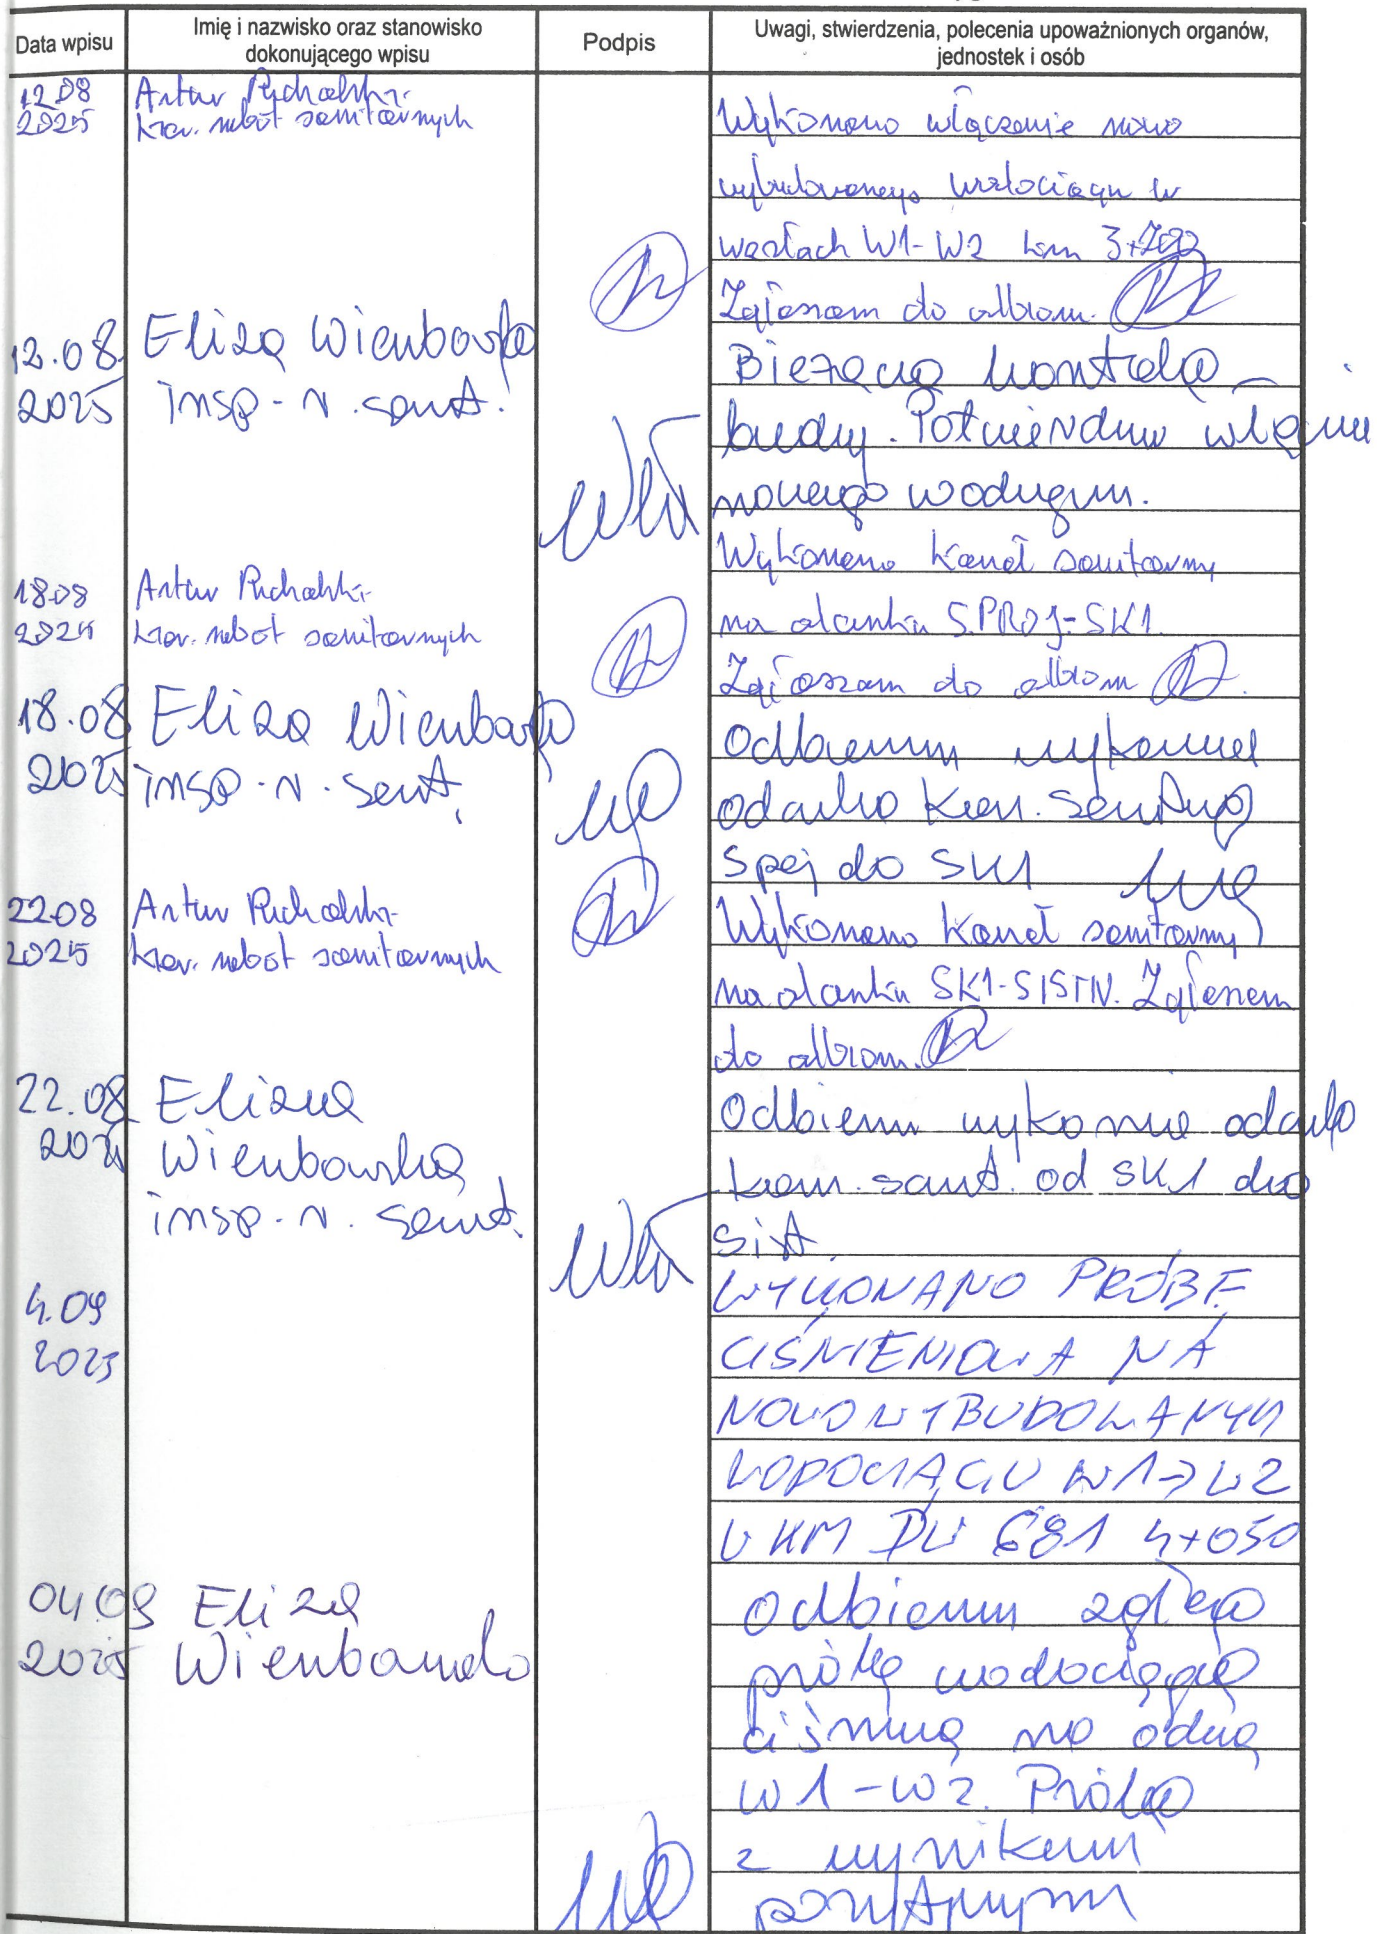 Data wpisu
Imię i nazwisko oraz stanowisko
dokonującego wpisu
Podpis
Uwagi, stwierdzenia, polecenia upoważnionych organów,
jednostek i osób
12.08
2025
Artur Puchalski
kier. robót sanitarnych
Wykonano włączenie nowo
wybudowanego wodociągu w
węzłach W1-W2 km
Zgłaszam do odbioru.
12.08
2025
Eliza Wienbowska
insp. n. sanit.
Bieżąca kontrola
budowy. Potwierdzam włączenie
nowego wodociągu.
18.08
2025
Artur Puchalski
kier. robót sanitarnych
Wykonano kanał sanitarny
na odcinku S.PROJ-SK1.
Zgłaszam do odbioru
18.08
2025
Eliza Wienbowska
insp. n. sanit.
Odbieram wykonanie
odcinka kan. sanitarnej
do SK1
22.08
2025
Artur Puchalski
kier. robót sanitarnych
Wykonano kanał sanitarny
na odcinku SK1-SISTN. Zgłaszam
do odbioru.
22.08
2025
Eliza
Wienbowska
insp. n. sanit.
Odbieram wykonanie odcinka
kan. sanit. od SK1 do
4.09
2025
WYKONANO PRÓBĘ
CIŚNIENIOWĄ NA
NOWOWYBUDOWANYM
WODOCIĄGU W1→W2
W KM DW 681 4+050
04.09
2025
Eliza
Wienbowska
Odbieram
próbę wodociągu
na
W1-W2. Próba
z wynikiem
pozytywnym